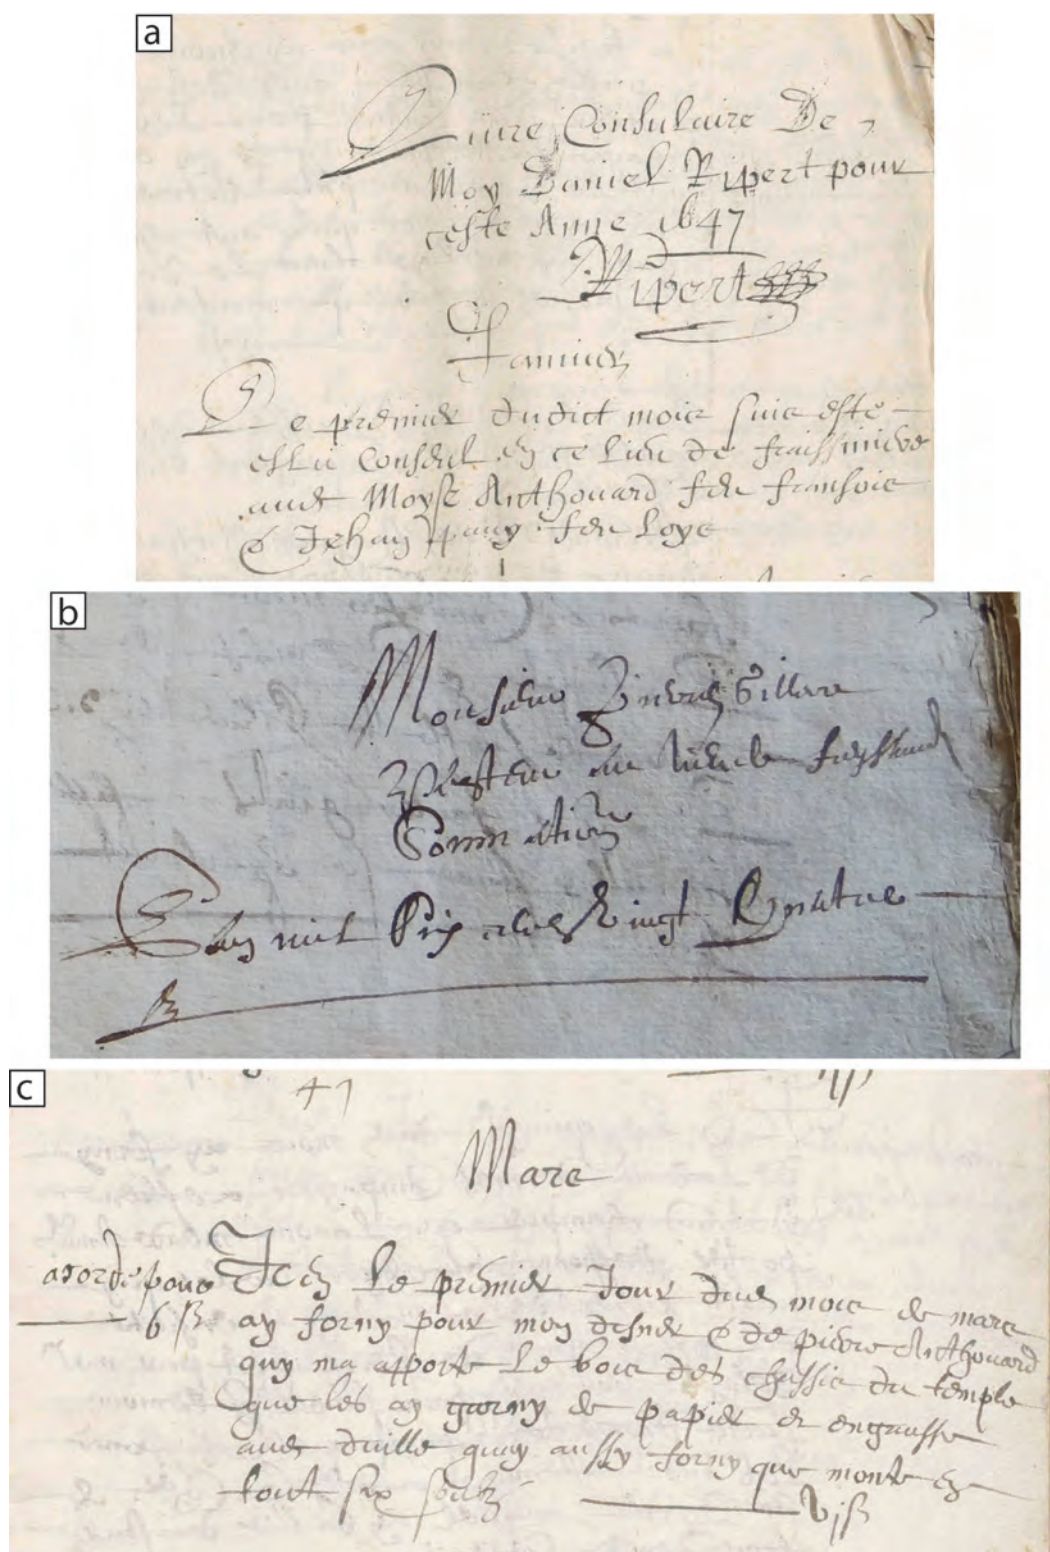 a
Livre Consulaire De
Moy Daniel Ripert pour
ceste Anne 1647
Ripert
Janvier
Le premier dudict mois suis esté
esleu Consul en ce lieu de fraissiniere
avec Moyse Anthouard feu fransois
& Jehan pany feu Loye
b
Monsieur
du lieu de
Sommation
L'an mil Six cens Vingt Quatre
c
47
Mars
acordé pour
6 ß
Item Le premier Jour dud mois de mars
ay forny pour mon disner & de pierre Anthouard
quy ma apporté Le bois des chassis du temple
que les ay garny de papier et engraisse
avec d'uille quay aussy forny que monte en
tout six soulz
vj ß